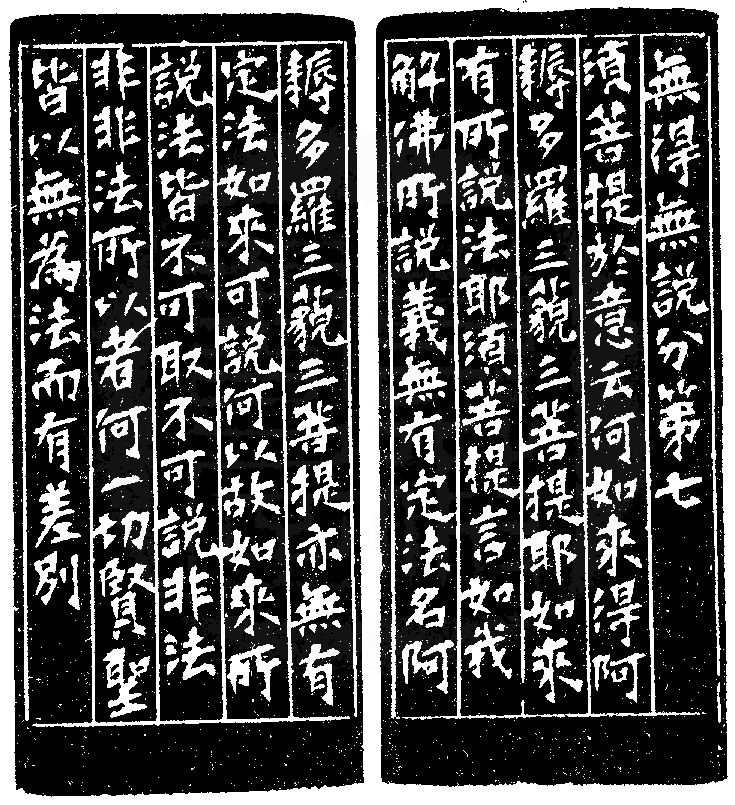 無得無說分第七
須菩提於意云何如來得阿
耨多羅三藐三菩提耶如來
有所說法耶須菩提言如我
解佛所說義無有定法名阿
耨多羅三藐三菩提亦無有
定法如來可說何以故如來所
說法皆不可取不可說非法
非非法所以者何一切賢聖
皆以無為法而有差別